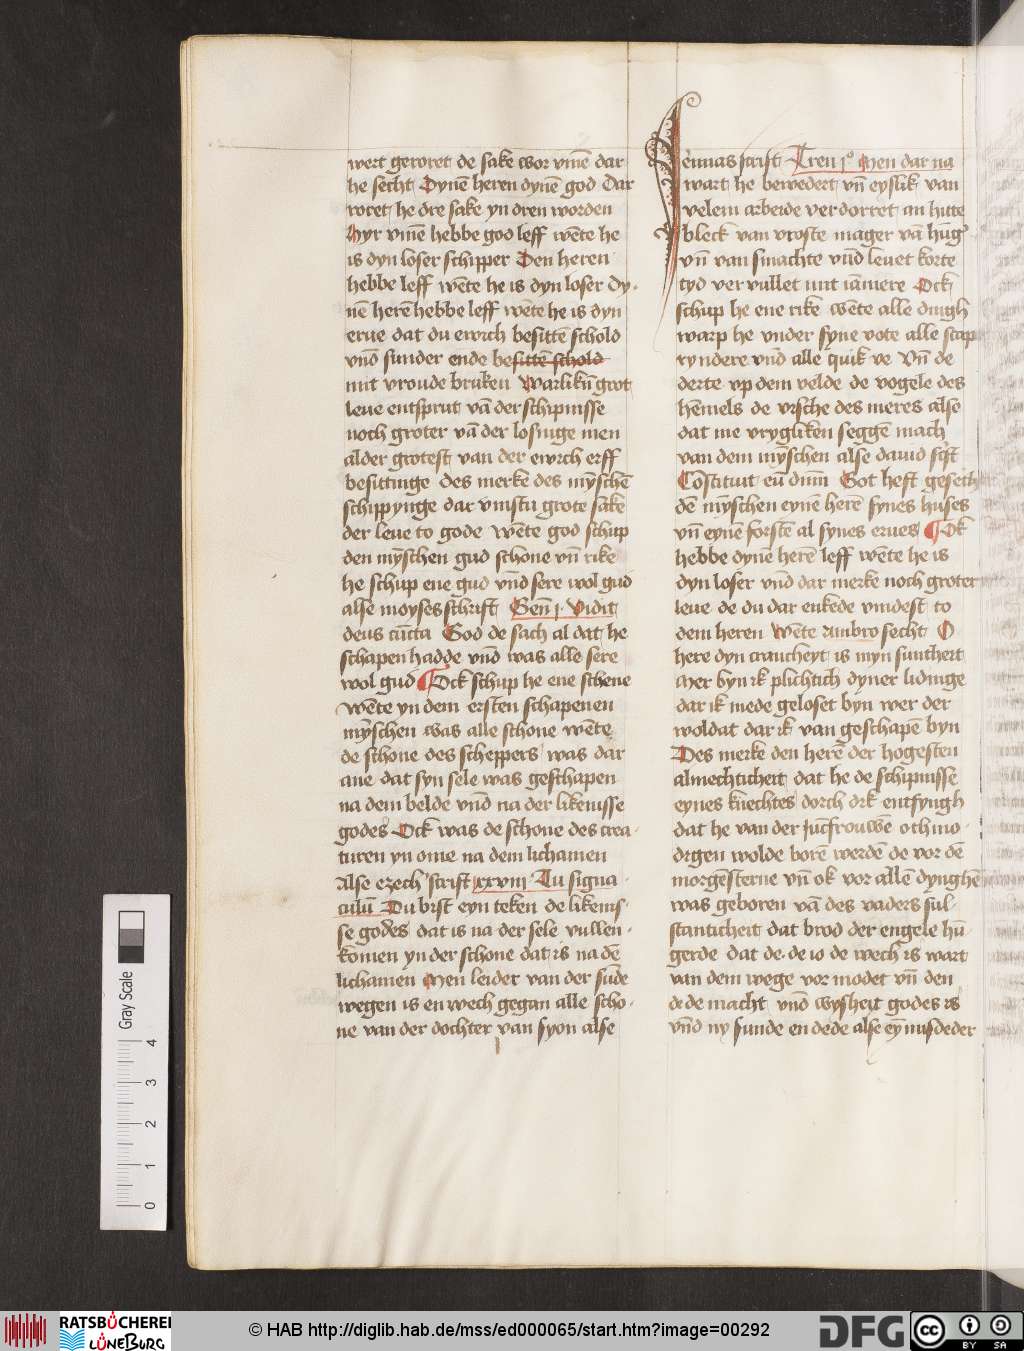 wert geroret de sake wor vm̄e dar
he secht Dynē heren dynē god Dar
roret he dre sake yn dren worden
Hyr vm̄e hebbe god leff wēte he
is dyn loser schipper Den heren
hebbe leff wēte he is dyn loser dy-
nē herē hebbe leff wēte he is dyn
erue dat du ewich besittē schold
vnd sunder ende besittē schold
mit vroude bruken Warlikē grot
leue entsprut vā der schipnisse
noch groter vā der losinge men
alder grotest van der ewich erff
besittinge Des merke des mȳschē
schippynge dar vinstu grote sake
der leue to gode wēte god schup
den mȳschen gud schone vn̄ rike
he schup ene gud vnd sere wol gud
alse moyses schrift Gen̄ j. Vidit
deus cūcta God de sach al dat he
schapen hadde vnd was alle sere
wol gud Ock schup he ene schone
wēte yn dem ersten schapenen
mȳschen was alle schone wēte
de schone des scheppers was dar
ane dat syn sele was geschapen
na dem belde vnd na der likenisse
godes Ock was de schone des crea-
turen yn ome na dem lichamen
alse ezech' scrift xxviij Tu signa-
culū Du bist eyn teken de likenis-
se godes dat is na der sele vullen-
komen yn der schone dat is na dē
lichamen Men leider van der sūde
wegen is en wech gegan alle scho-
ne van der dochter van syon alse
Jeremias scrift Tren j° Men dar na
wart he bewedert vn̄ eyslik van
velem arbeide verdorret an hitte
bleck van vroste mager vā hūg'
vn̄ van smachte vnd leuet korte
tyd vervullet mit iāmere Ock
schup he ene rike wēte alle dingh
warp he vnder syne vote alle scap
ryndere vnd alle quik ve Vn̄ de
derte vp dem velde de vogele des
hēmels de vische des meres alse
dat me vrygliken seggē mach
van dem mȳschen alse dauid scft
Cōstituit eū dnm̄ Got heft geseth
dē mȳschen eynē herē synes huses
vn̄ eynē forstē al synes erues Ok
hebbe dynē herē leff wēte he is
dyn loser vnd dar merke noch groter
leue de du dar enkede vindest to
dem heren Wēte Ambro secht O
here dyn crancheyt is myn suntheit
Mer byn ik plichtich dyner lidinge
dar ik mede geloset byn wer der
woldat dar ik van geschapē byn
Des merke den herē der hogesten
almechticheit dat he de schipnissē
eynes knechtes dorch dik entfyngh
dat he van der Jūcfrouwē othmo-
digen wolde borē werdē de vor dē
morgēsterne vn̄ ok vor allē dynghē
was geboren vā des vaders sul-
stanticheit dat brod der engele hū-
gerde dat de de io de wech is wart
van dem wege vor modet vn̄ den
de de macht vnd wysheit godes is
vnd ny sunde en dede alse eȳ misdeder
Gray Scale
0 1 2 3 4
RATSBÜCHEREI LÜNEBURG
© HAB http://diglib.hab.de/mss/ed000065/start.htm?image=00292
DFG
cc BY SA